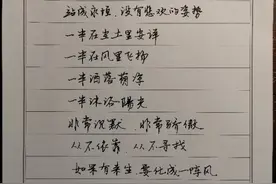 站成永恒，没有悲欢的姿势
一半在尘土里安详
一半在风里飞扬
一半洒落荫凉
一半沐浴陽光
非常沉默、非常骄傲
从不依靠 从不寻找
如果有来生，要化成一阵风